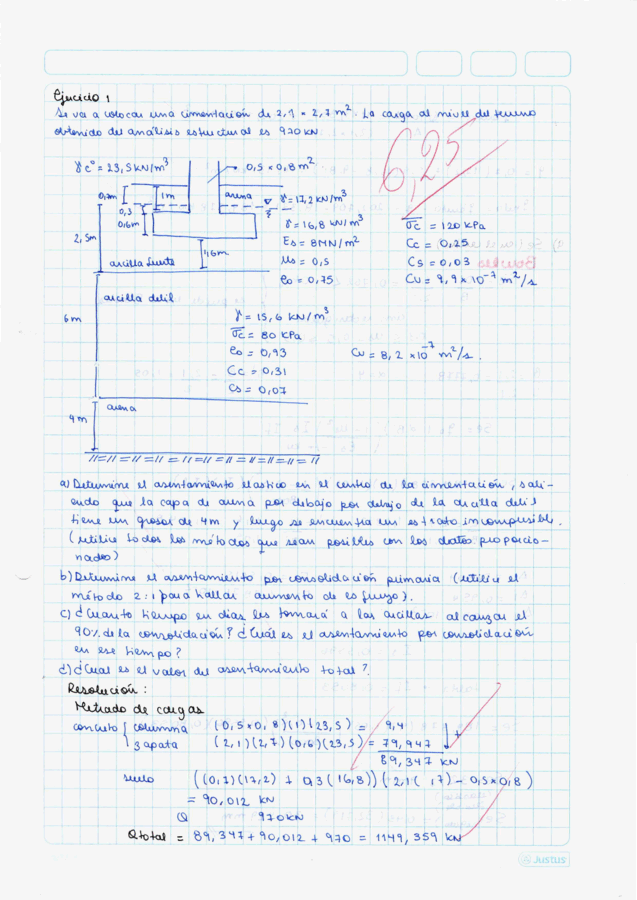 Ejercicio 1
Se va a colocar una cimentación de 2,1 × 2,7 m². La carga al nivel del terreno
obtenido del análisis estructural es 970 kN.
6,25
γc° = 23,5 kN/m³
0,5 × 0,8 m²
0,7m
1m
arena
γ = 17,2 kN/m³
0,3
0,6m
γ = 16,8 kN/m³
σc = 120 KPa
2,5m
Es = 8MN/m²
Cc = 0,25
1,6m
μs = 0,5
Cs = 0,03
arcilla fuerte
eo = 0,75
Cv = 9,9 × 10⁻⁷ m²/s
arcilla debil
γ = 15,6 kN/m³
6m
σc = 80 KPa
eo = 0,93
Cv = 8,2 × 10⁻⁷ m²/s.
Cc = 0,31
Cs = 0,07
arena
4m
a) Determine el asentamiento elastico en el centro de la cimentación, sabi-
endo que la capa de arena por debajo por debajo de la arcilla debil
tiene un grosor de 4m y luego se encuentra un estrato incompresible.
(utilice todos los métodos que sean posibles con los datos proporcio-
nados)
b) Determine el asentamiento por consolidación primaria (utilice el
método 2:1 para hallar aumento de esfuerzo).
c) ¿Cuanto tiempo en días les tomará a las arcillas alcanzar el
90% de la consolidación? ¿Cuál es el asentamiento por consolidación
en ese tiempo?
d) ¿Cual es el valor del asentamiento total?.
Resolución:
Metrado de cargas
concreto { columna (0,5×0,8)(1)(23,5) = 9,4
zapata (2,1)(2,7)(0,6)(23,5) = 79,947 +
89,347 kN
suelo ((0,7)(17,2) + 0,3(16,8)) (2,1( ,7) - 0,5×0,8)
= 90,012 kN
Q 970kN
Qtotal = 89,347 + 90,012 + 970 = 1149,359 kN
Justus